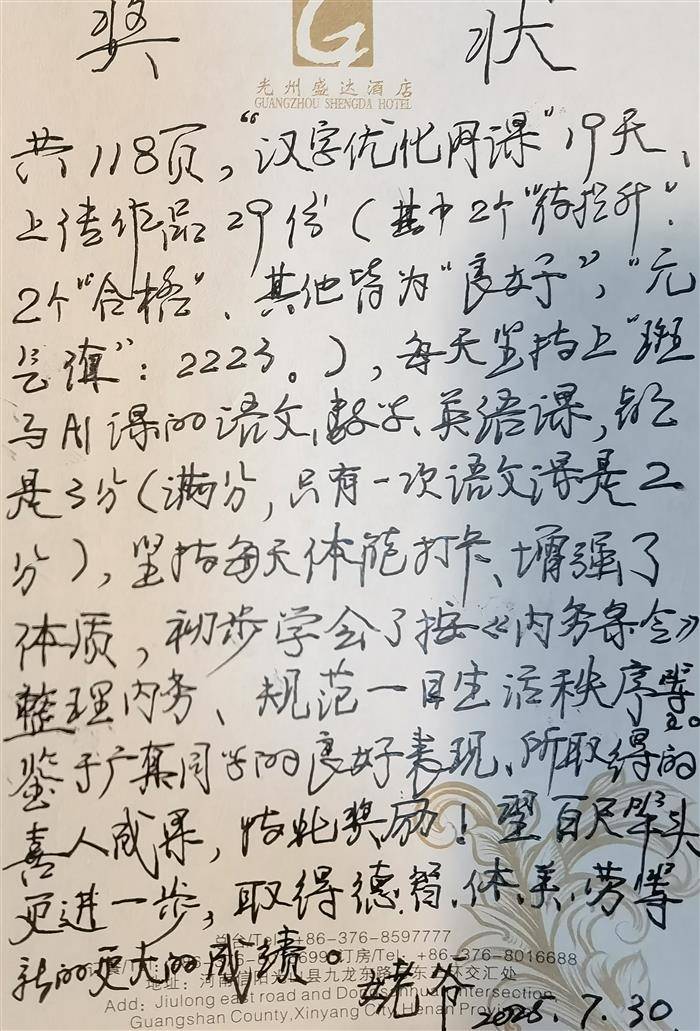 奖 状
G
光州盛达酒店
GUANGZHOU SHENGDA HOTEL
共118页，“汉字优化网课”19天、
上传作品29份（其中2个“待提升”.
2个“合格”、其他皆为“良好”，“元
气弹”：2223。），每天坚持上“斑
马AI课的语文、数学、英语课，都
是3分（满分，只有一次语文课是2
分），坚持每天体能打卡、增强了
体质，初步学会了按《内务条令》
整理内务、规范一日生活秩序等等。
鉴于广集同学的良好表现、所取得的
喜人成果，特此奖励！望百尺竿头
更进一步，取得德.智.体.美.劳等
新的更大的成绩。 姥爷
2025.7.30
总台/Tel:+86-376-8597777
订房/Tel:+86-376-8016688
Add: Jiulong east road and intersection
Guangshan County,Xinyang City,Henan Province